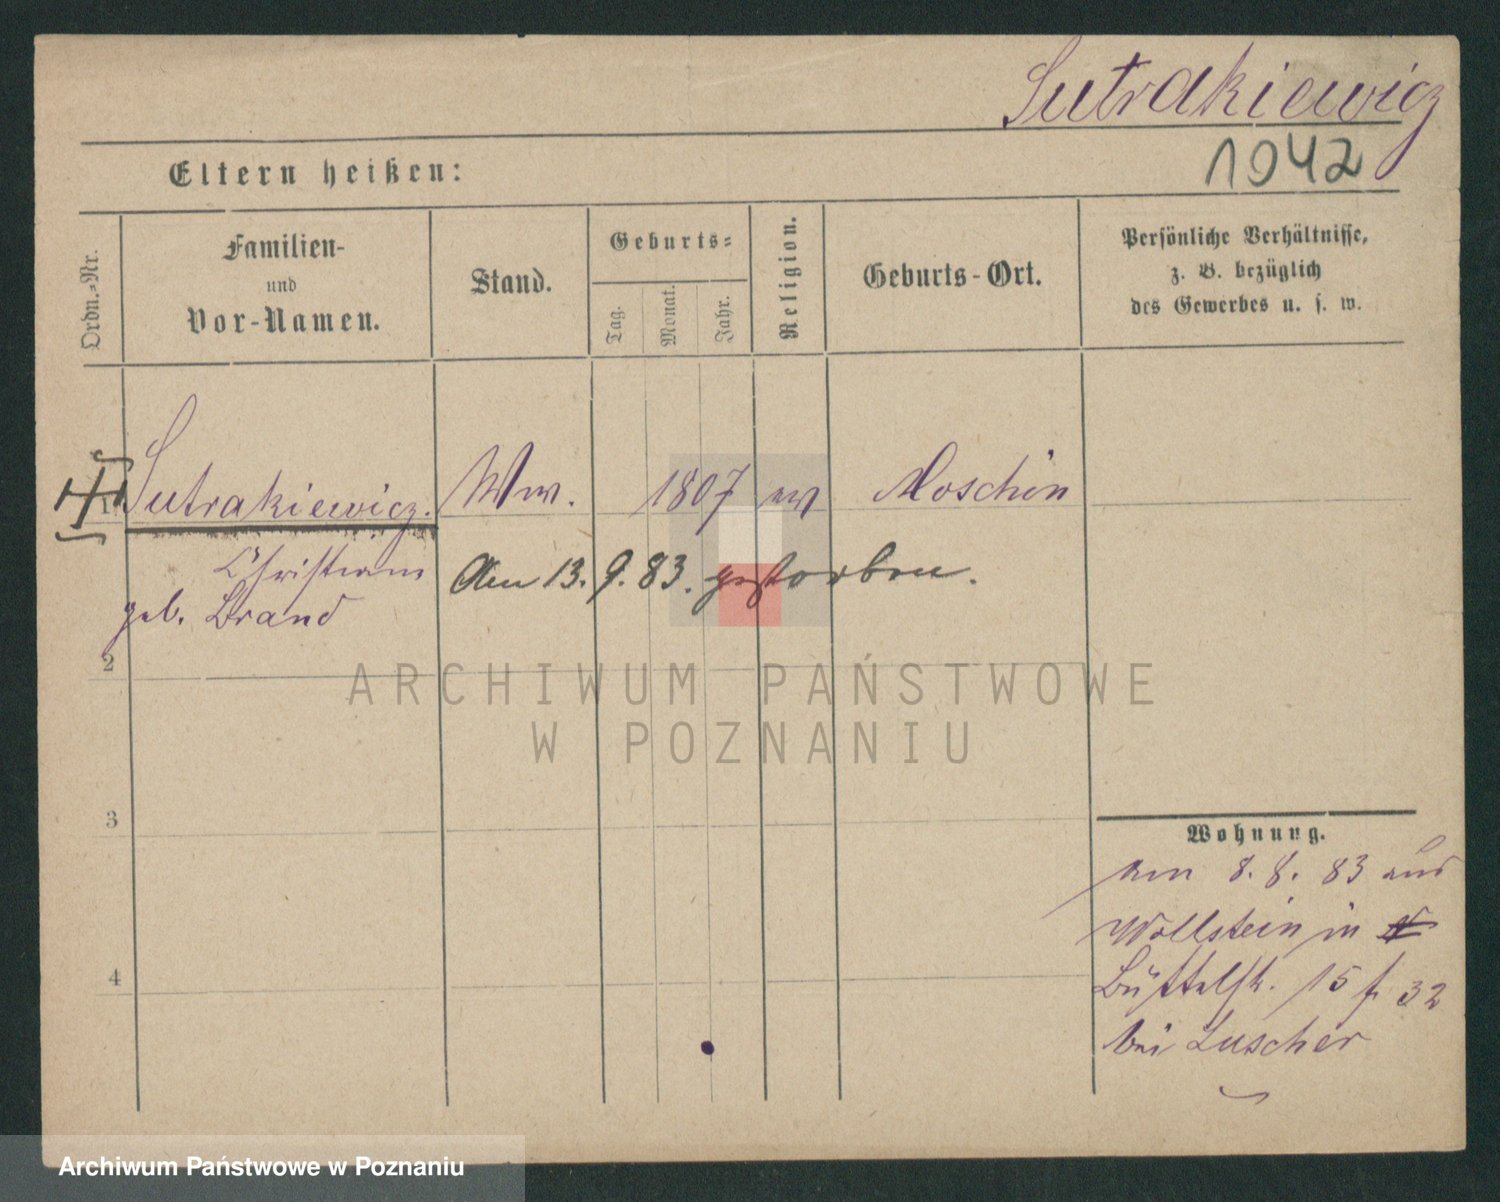 Sutrakiewicz
1942
Eltern heißen:
Ordn.-Nr.
Familien-
und
Vor-Namen.
Stand.
Geburts-
Tag.
Monat.
Jahr.
Religion.
Geburts-Ort.
Persönliche Verhältnisse,
z. B. bezüglich
des Gewerbes u. s. w.
1 Sutrakiewicz. Ww. 1807 ev Moschin
Christiane
geb. Brand
Am 13. 9. 83. gestorben.
2
3
4
ARCHIWUM PAŃSTWOWE
W POZNANIU
Wohnung.
am 8. 8. 83 aus
Wollstein in
Büttelst. 15 f. 32
bei Luscher
Archiwum Państwowe w Poznaniu